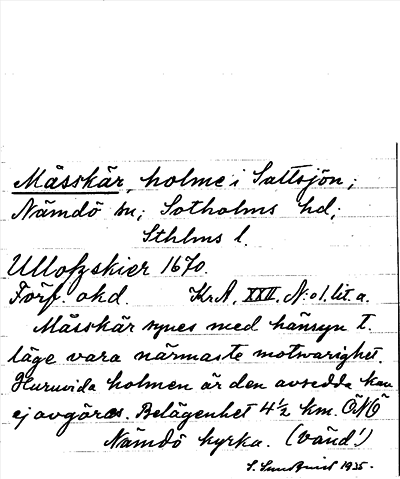 Måsskär, holme i Saltsjön;
Nämdö sn; Sotholms hd;
Sthlms l.
Ullofzskier 1670.
Förf. okd. Kr.A, XXII, N:o 1. lit. a.
Måsskär synes med hänsyn t.
läge vara närmaste motsvarighet.
Huruvida holmen är den avsedda kan
ej avgöras. Belägenhet 4½ km. ÖNÖ
Nämdö kyrka. (vänd!)
S. Sundquist 1935.